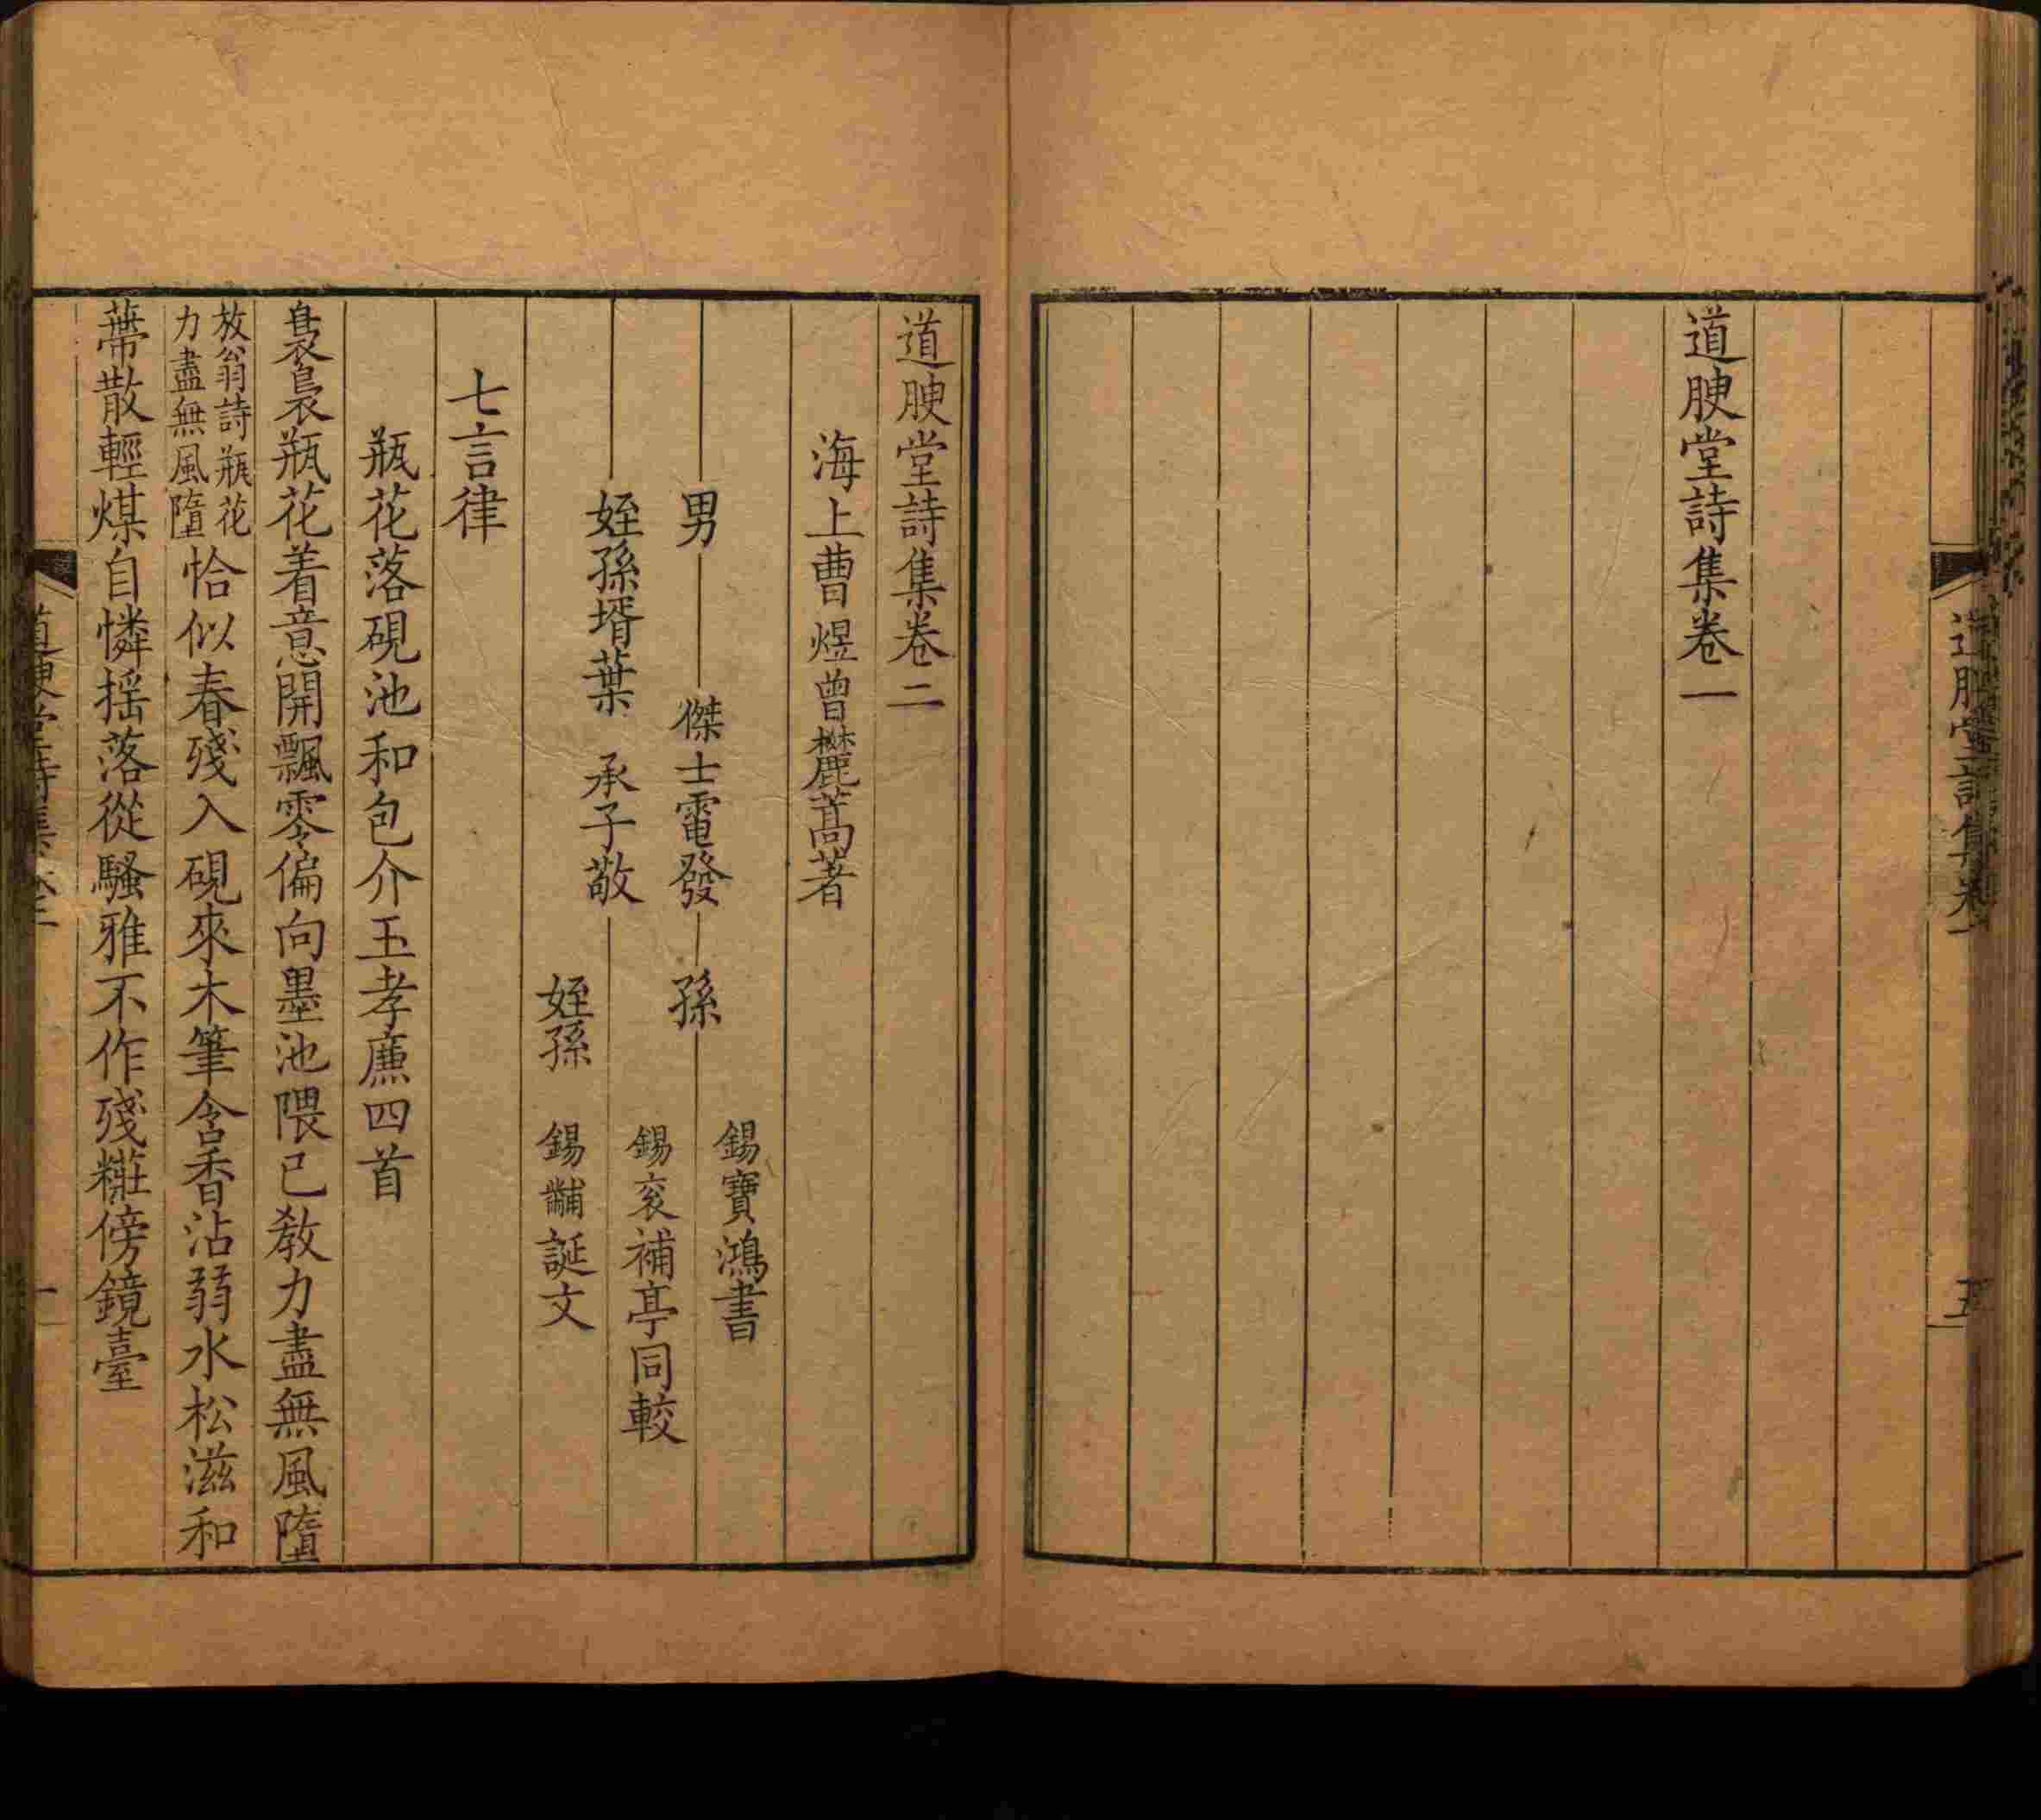 道腴堂詩集卷一
五
道腴堂詩集卷一
道腴堂詩集卷二
海上曹煜曾麓蒿著
男 傑士電發 孫 錫寶鴻書
姪孫壻葉 承子敬 錫袞補亭同較
姪孫 錫黼誕文
七言律
瓶花落硯池和包介玉孝廉四首
裊裊瓶花着意開飄零偏向墨池隈已教力盡無風墮
放翁詩瓶花力盡無風墮
恰似春殘入硯來木筆含香沾弱水松滋和
蒂散輕煤自憐揺落從騷雅不作殘糚傍鏡臺
道腴堂詩集卷二
一